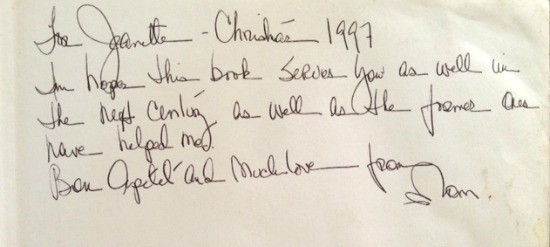 For Jeanette - Christmas 1997
In hopes this book serves you as well in
the next Century as well as the former ones
have helped me.
Bon Apetit and Much love from
Mom.